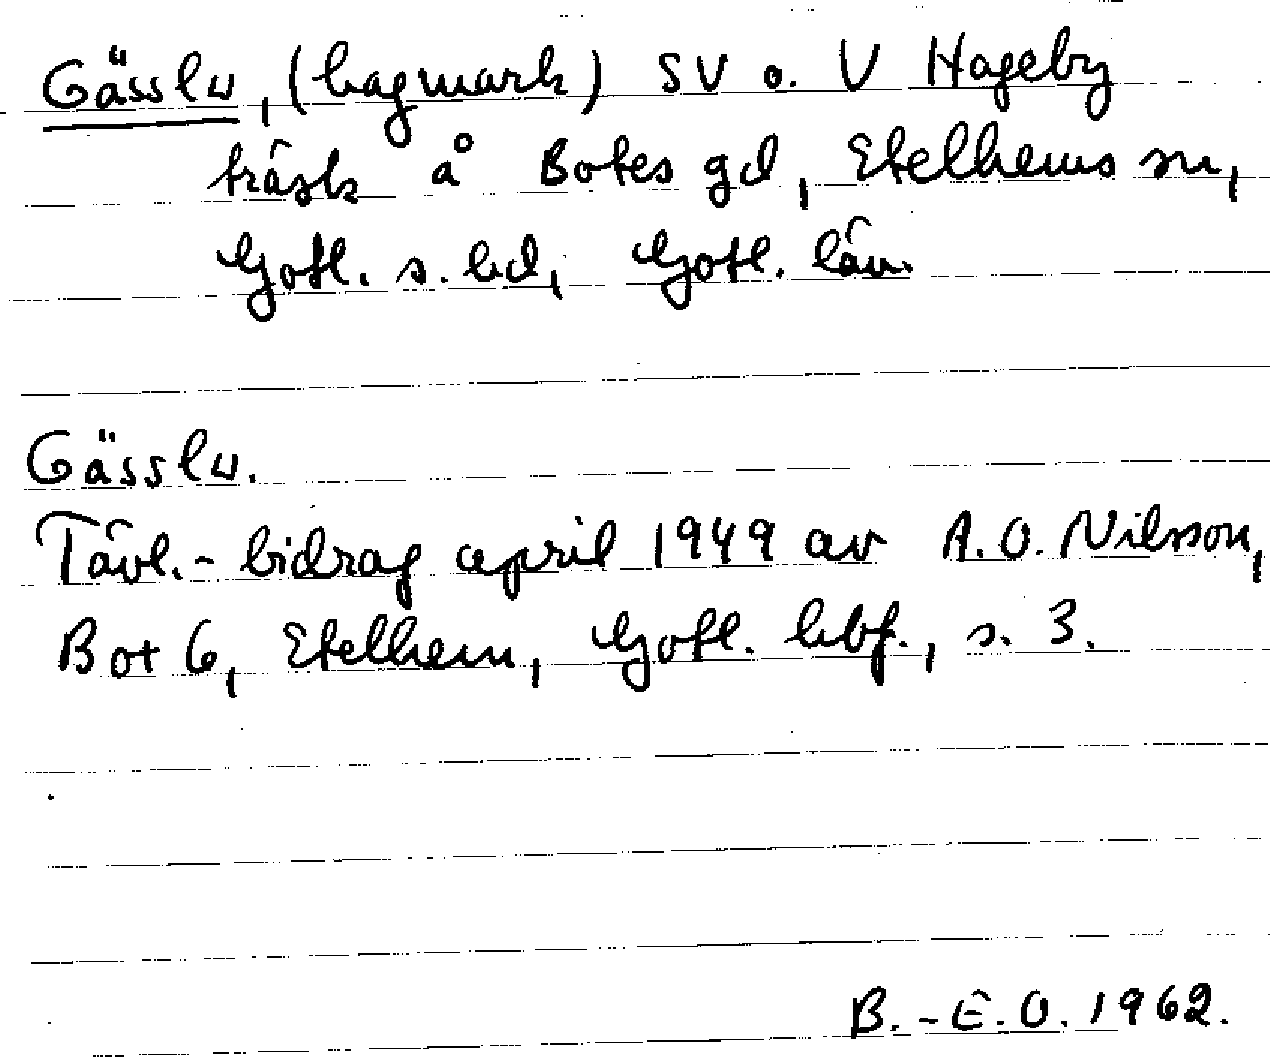 Gässlu, (hagmark) SV o. V Hageby
träsk å Botes gd, Etelhems sn,
Gotl. s. hd, Gotl. län.
Gässlu.
Tävl.-bidrag april 1949 av A.O. Nilsson,
Bot 6, Etelhem, Gotl. hbf., s. 3.
B.-E.O. 1962.